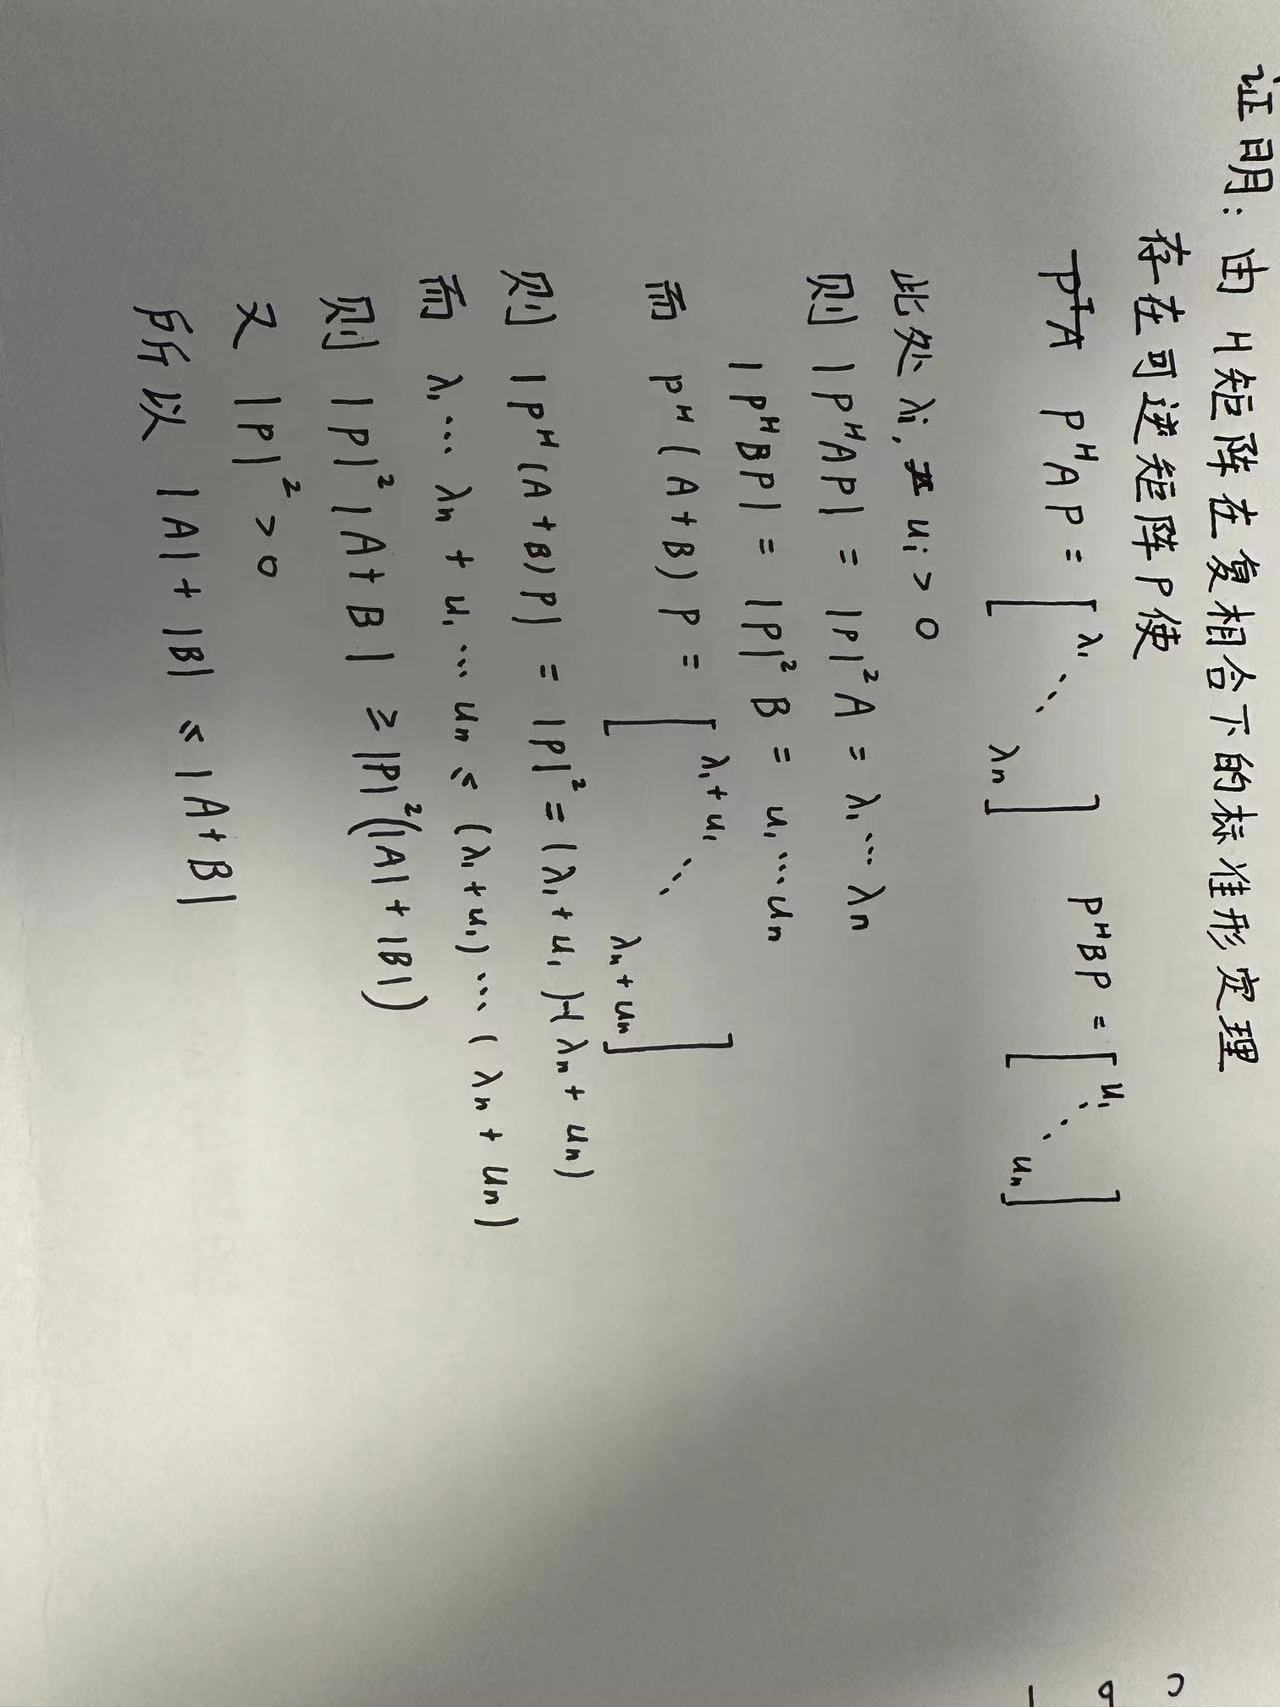 证明：由 H矩阵在复相合下的标准形定理
存在可逆矩阵P使
P^HAP = [λ₁ ⋱ λn] P^HBP = [u₁ ⋱ un]
此处 λi, ui > 0
则 |P^HAP| = |P|²A = λ₁…λn
|P^HBP| = |P|²B = u₁…un
而 P^H(A+B)P = [λ₁+u₁ ⋱ λn+un]
则 |P^H(A+B)P| = |P|² = (λ₁+u₁)…(λn+un)
而 λ₁…λn + u₁…un ≤ (λ₁+u₁)…(λn+un)
则 |P|²|A+B| ≥ |P|²(|A|+|B|)
又 |P|² > 0
所以 |A|+|B| ≤ |A+B|